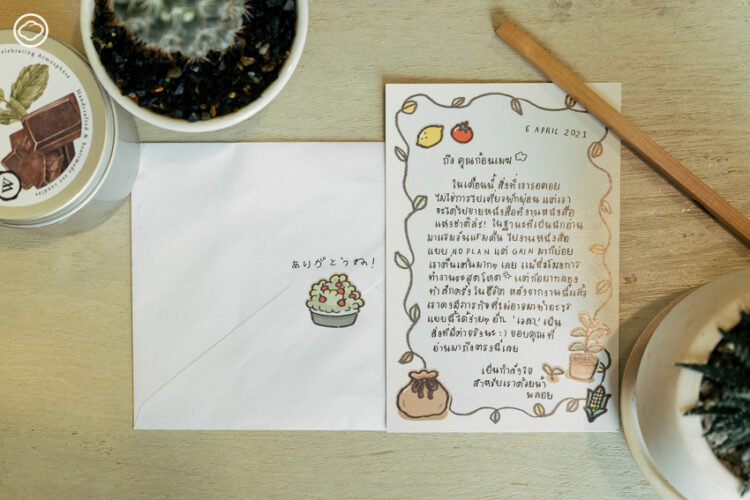 Celebrating Atmosphere
Handcrafted &
ありがとうね!
6 APRIL 2021
ถึง คุณก้อนเมฆ
ในเดือนนี้ สิ่งที่เรารอคอย
ไม่ใช่การไปเที่ยวพักผ่อน แต่เรา
จะได้ไปขายหนังสือที่งานหนังสือ
แห่งชาติล่ะ! ในฐานะที่เป็นนักอ่าน
มาแรมวันแรมคืน ไปงานหนังสือ
แบบ NO PLAN แต่ GAIN มาก็บ่อย
เราตื่นเต้นมากๆ เลย แม้ชั่วโมงการ
ทำงานจะสุดโหด แต่ก็อยากลอง
ทำสักครั้งในชีวิต หลังจากงานนี้แล้ว
เราคงมีภารกิจที่ไม่อาจมาทำอะไร
แบบนี้ได้ง่ายๆ อีก 'เวลา' เป็น
สิ่งที่มีค่าจริงนะ :) ขอบคุณที่
อ่านมาถึงตรงนี้เลย
เป็นกำลังใจ
สำหรับเราด้วยน้า
พลอย